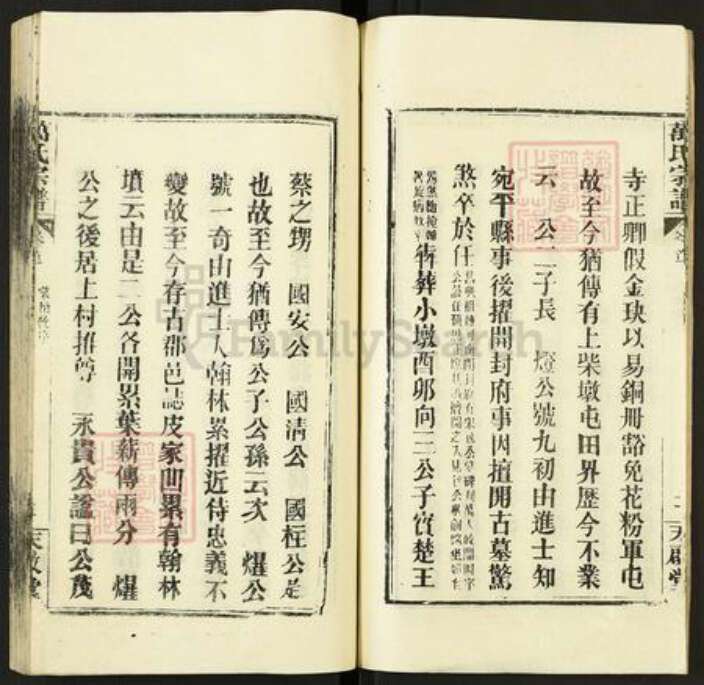 萬氏宗譜
寺正卿假金玦以易銅冊豁免花粉軍屯
故至今猶傳有上柴墩屯田界歷今不業
云 公二子長 燈公號九初由進士知
宛平縣事後擢開封府事因擅開古墓驚
煞卒於任
歸葬小墩酉卯向三公子實楚王
二 天啟堂
蔡之甥 國安公 國清公 國柱公是
也故至今猶傳爲公子公孫云次 燿公
號一奇由進士入翰林累擢近侍忠義不
變故至今存古郡邑誌皮家凹累有翰林
墳云由是二公各開累葉薪傳兩分 燿
公之後居上村推尊 永貴公諡曰公茂
萬氏宗譜
天啟堂
FamilySearch